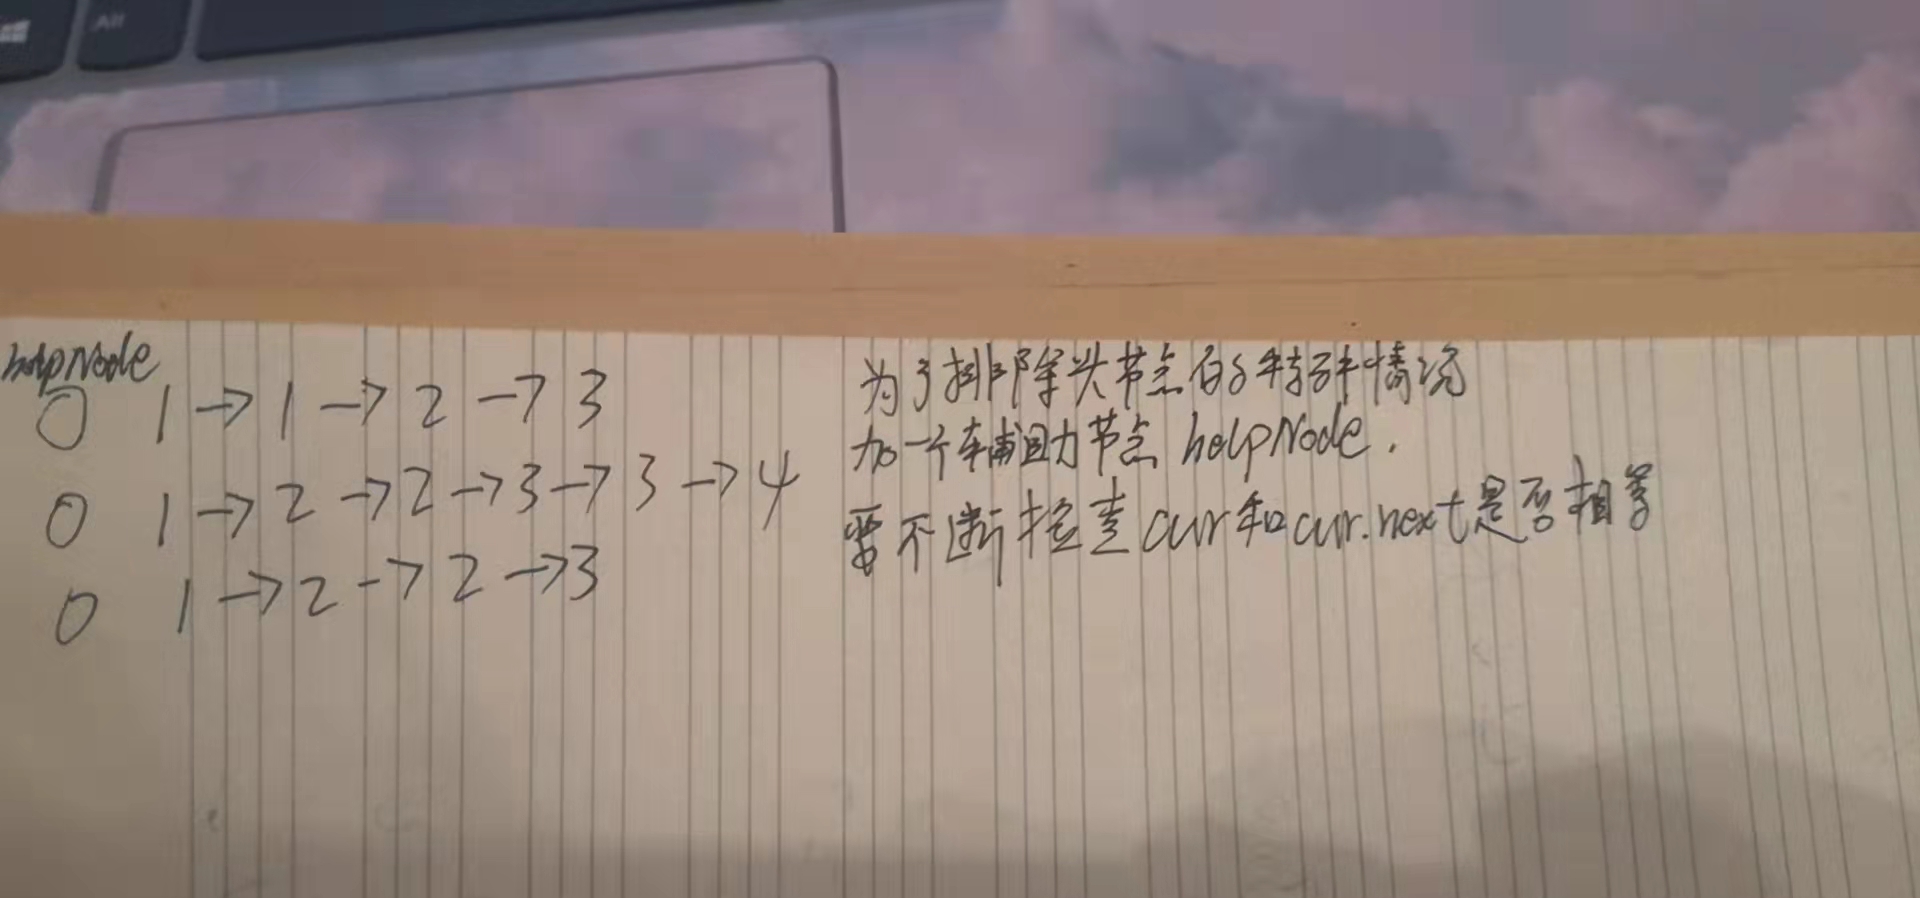 Alt
helpNode
0 1→1→2→3
0 1→2→2→3→3→4
0 1→2→2→3
为了排除头节点的特殊情况
加一个辅助节点 helpNode.
要不断检查cur和cur.next是否相等